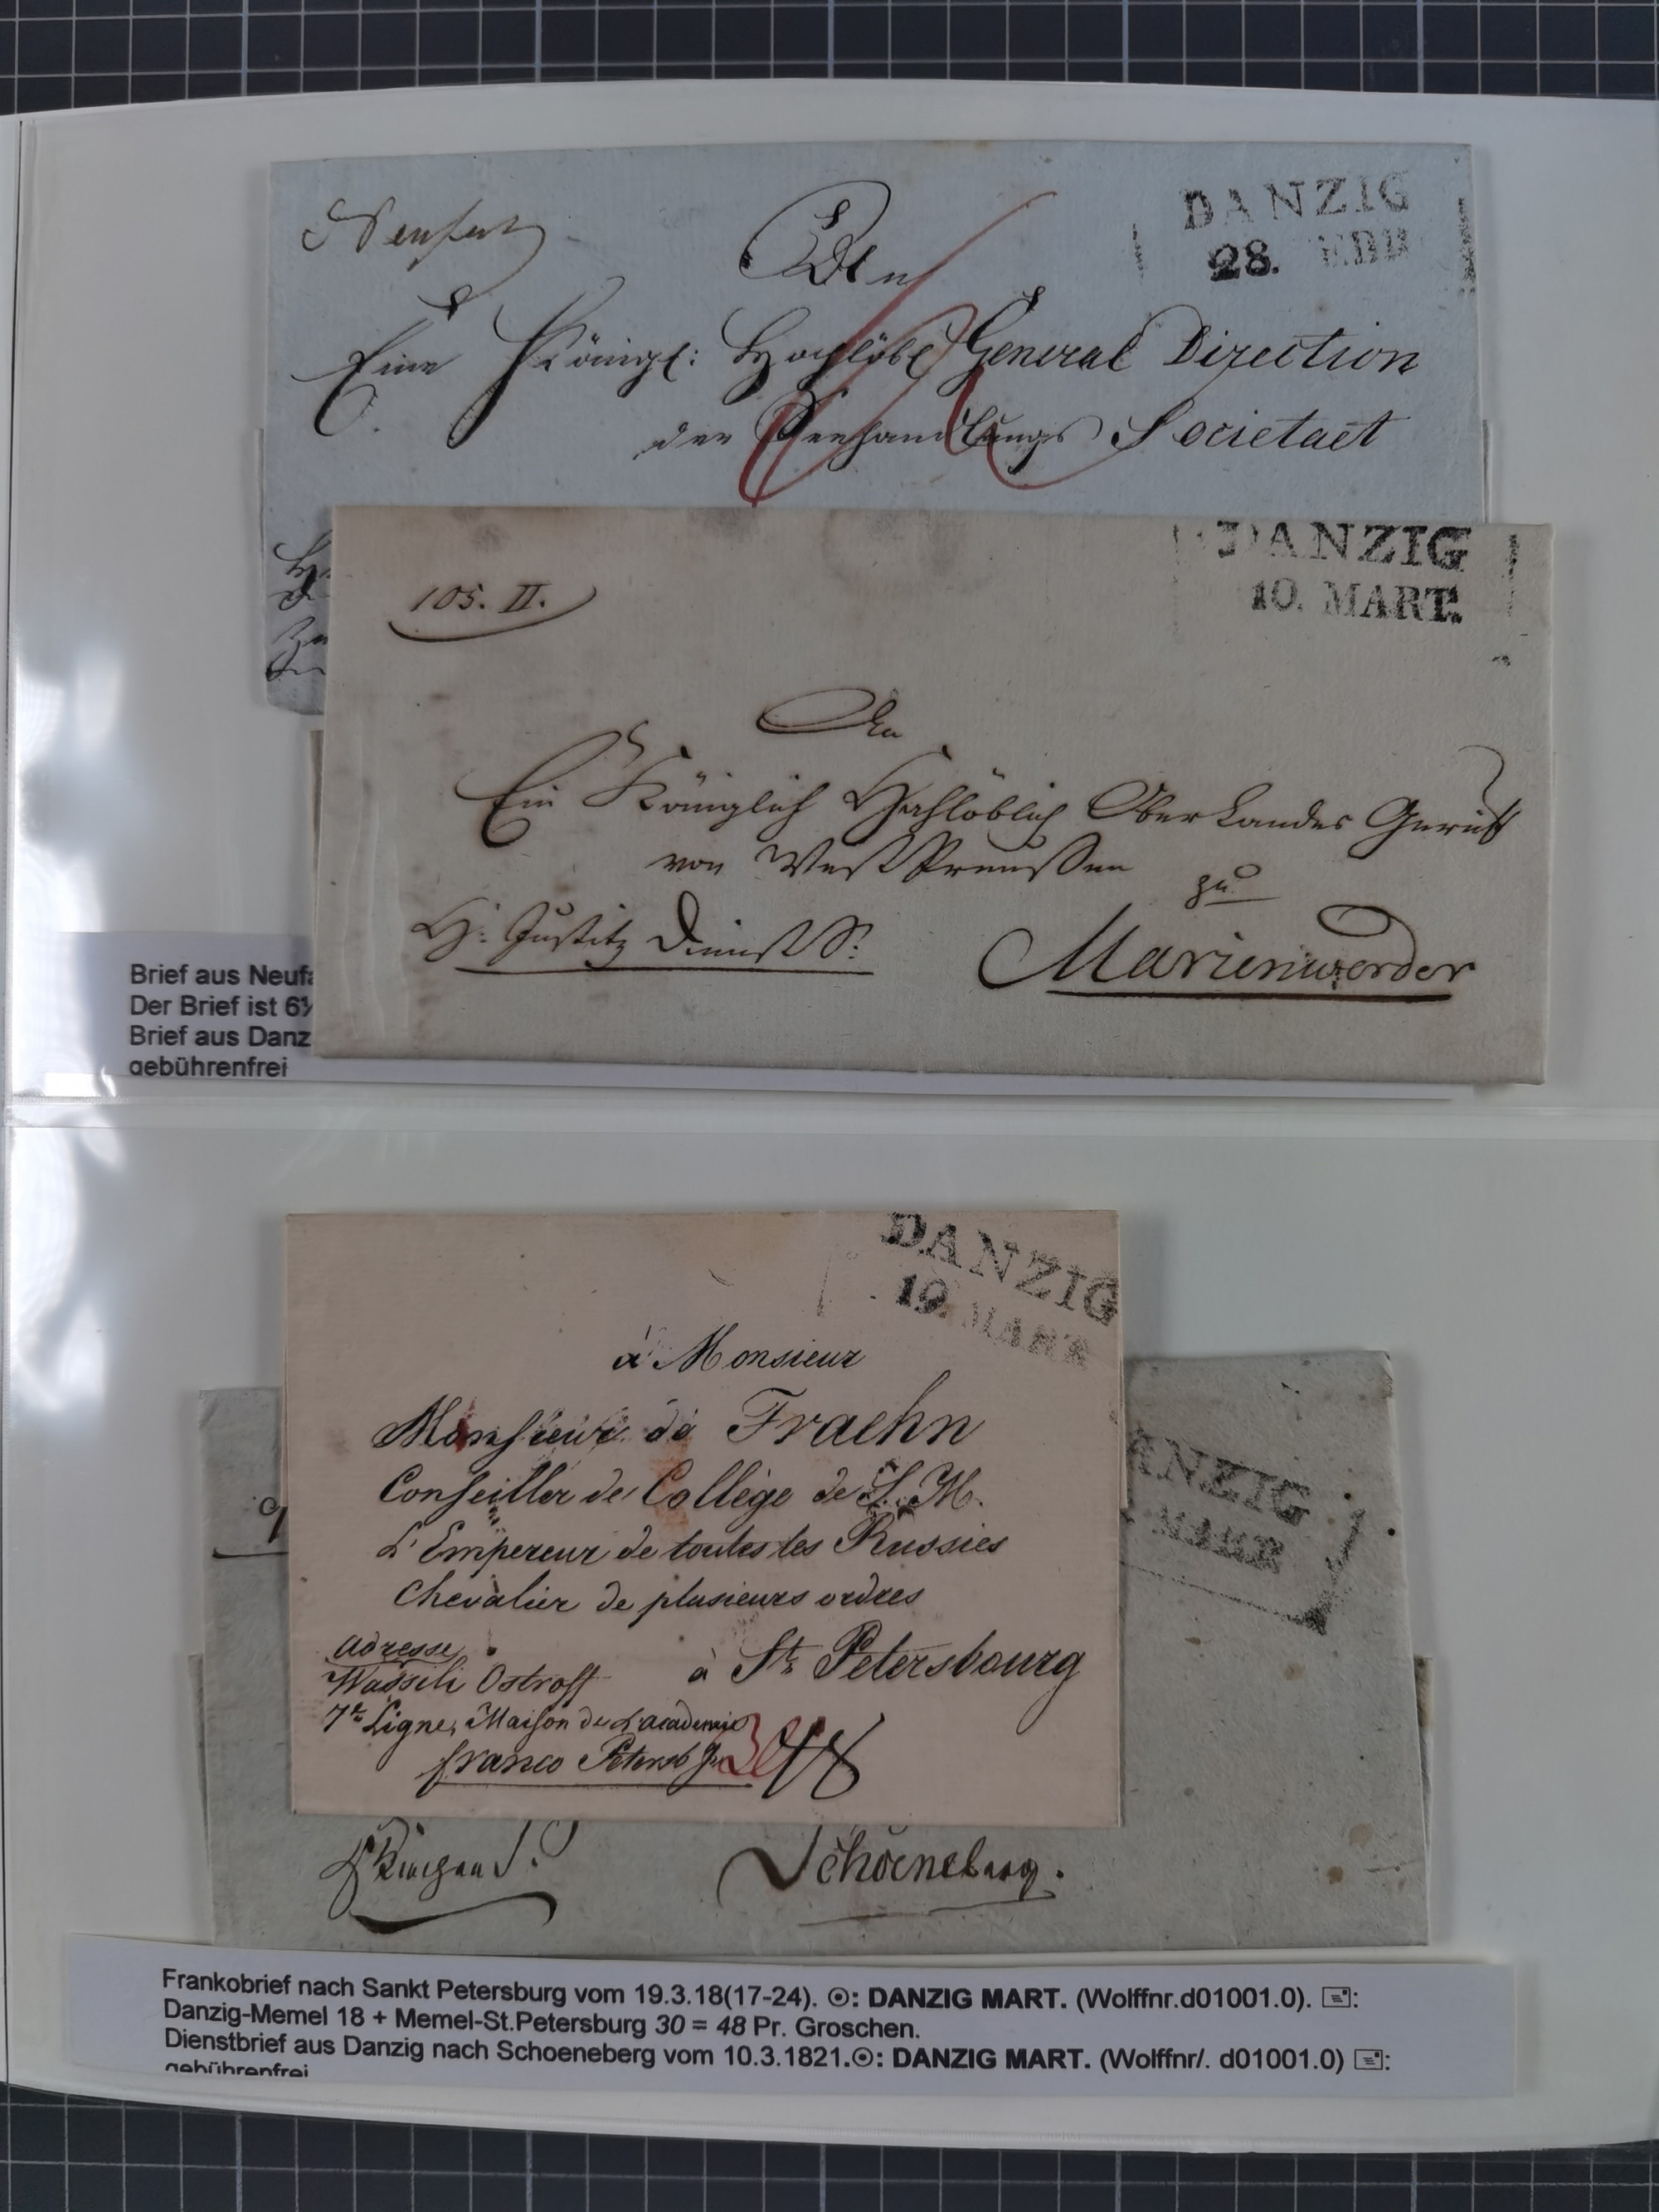 Neufar
DANZIG
28. FEBR
An
Eine Königl: Hochlöbl General Direction
der Seehandlungs Societaet
DANZIG
10. MART.
105. II.
An
Ein Königlich Hochlöblich Ober Landes Gericht
von West Preussen
zu
H: Justitz Dienst S:
Marienwerder
Brief aus Neufa
Der Brief ist 6½
Brief aus Danz
gebührenfrei
DANZIG
19. MART
à Monsieur
Monsieur de Fraehn
Conseiller de Collège de S. M.
L'Empereur de toutes les Russies
Chevalier de plusieurs ordres
Adresse
Wassili Ostroff
à St. Petersbourg
7te Ligne, Maison de l'academie
franco Petersb
30 48
ANZIG
MART
Schoeneberg.
Frankobrief nach Sankt Petersburg vom 19.3.18(17-24). ⊙: DANZIG MART. (Wolffnr.d01001.0). 🖃:
Danzig-Memel 18 + Memel-St.Petersburg 30 = 48 Pr. Groschen.
Dienstbrief aus Danzig nach Schoeneberg vom 10.3.1821.⊙: DANZIG MART. (Wolffnr/. d01001.0) 🖃:
gebührenfrei